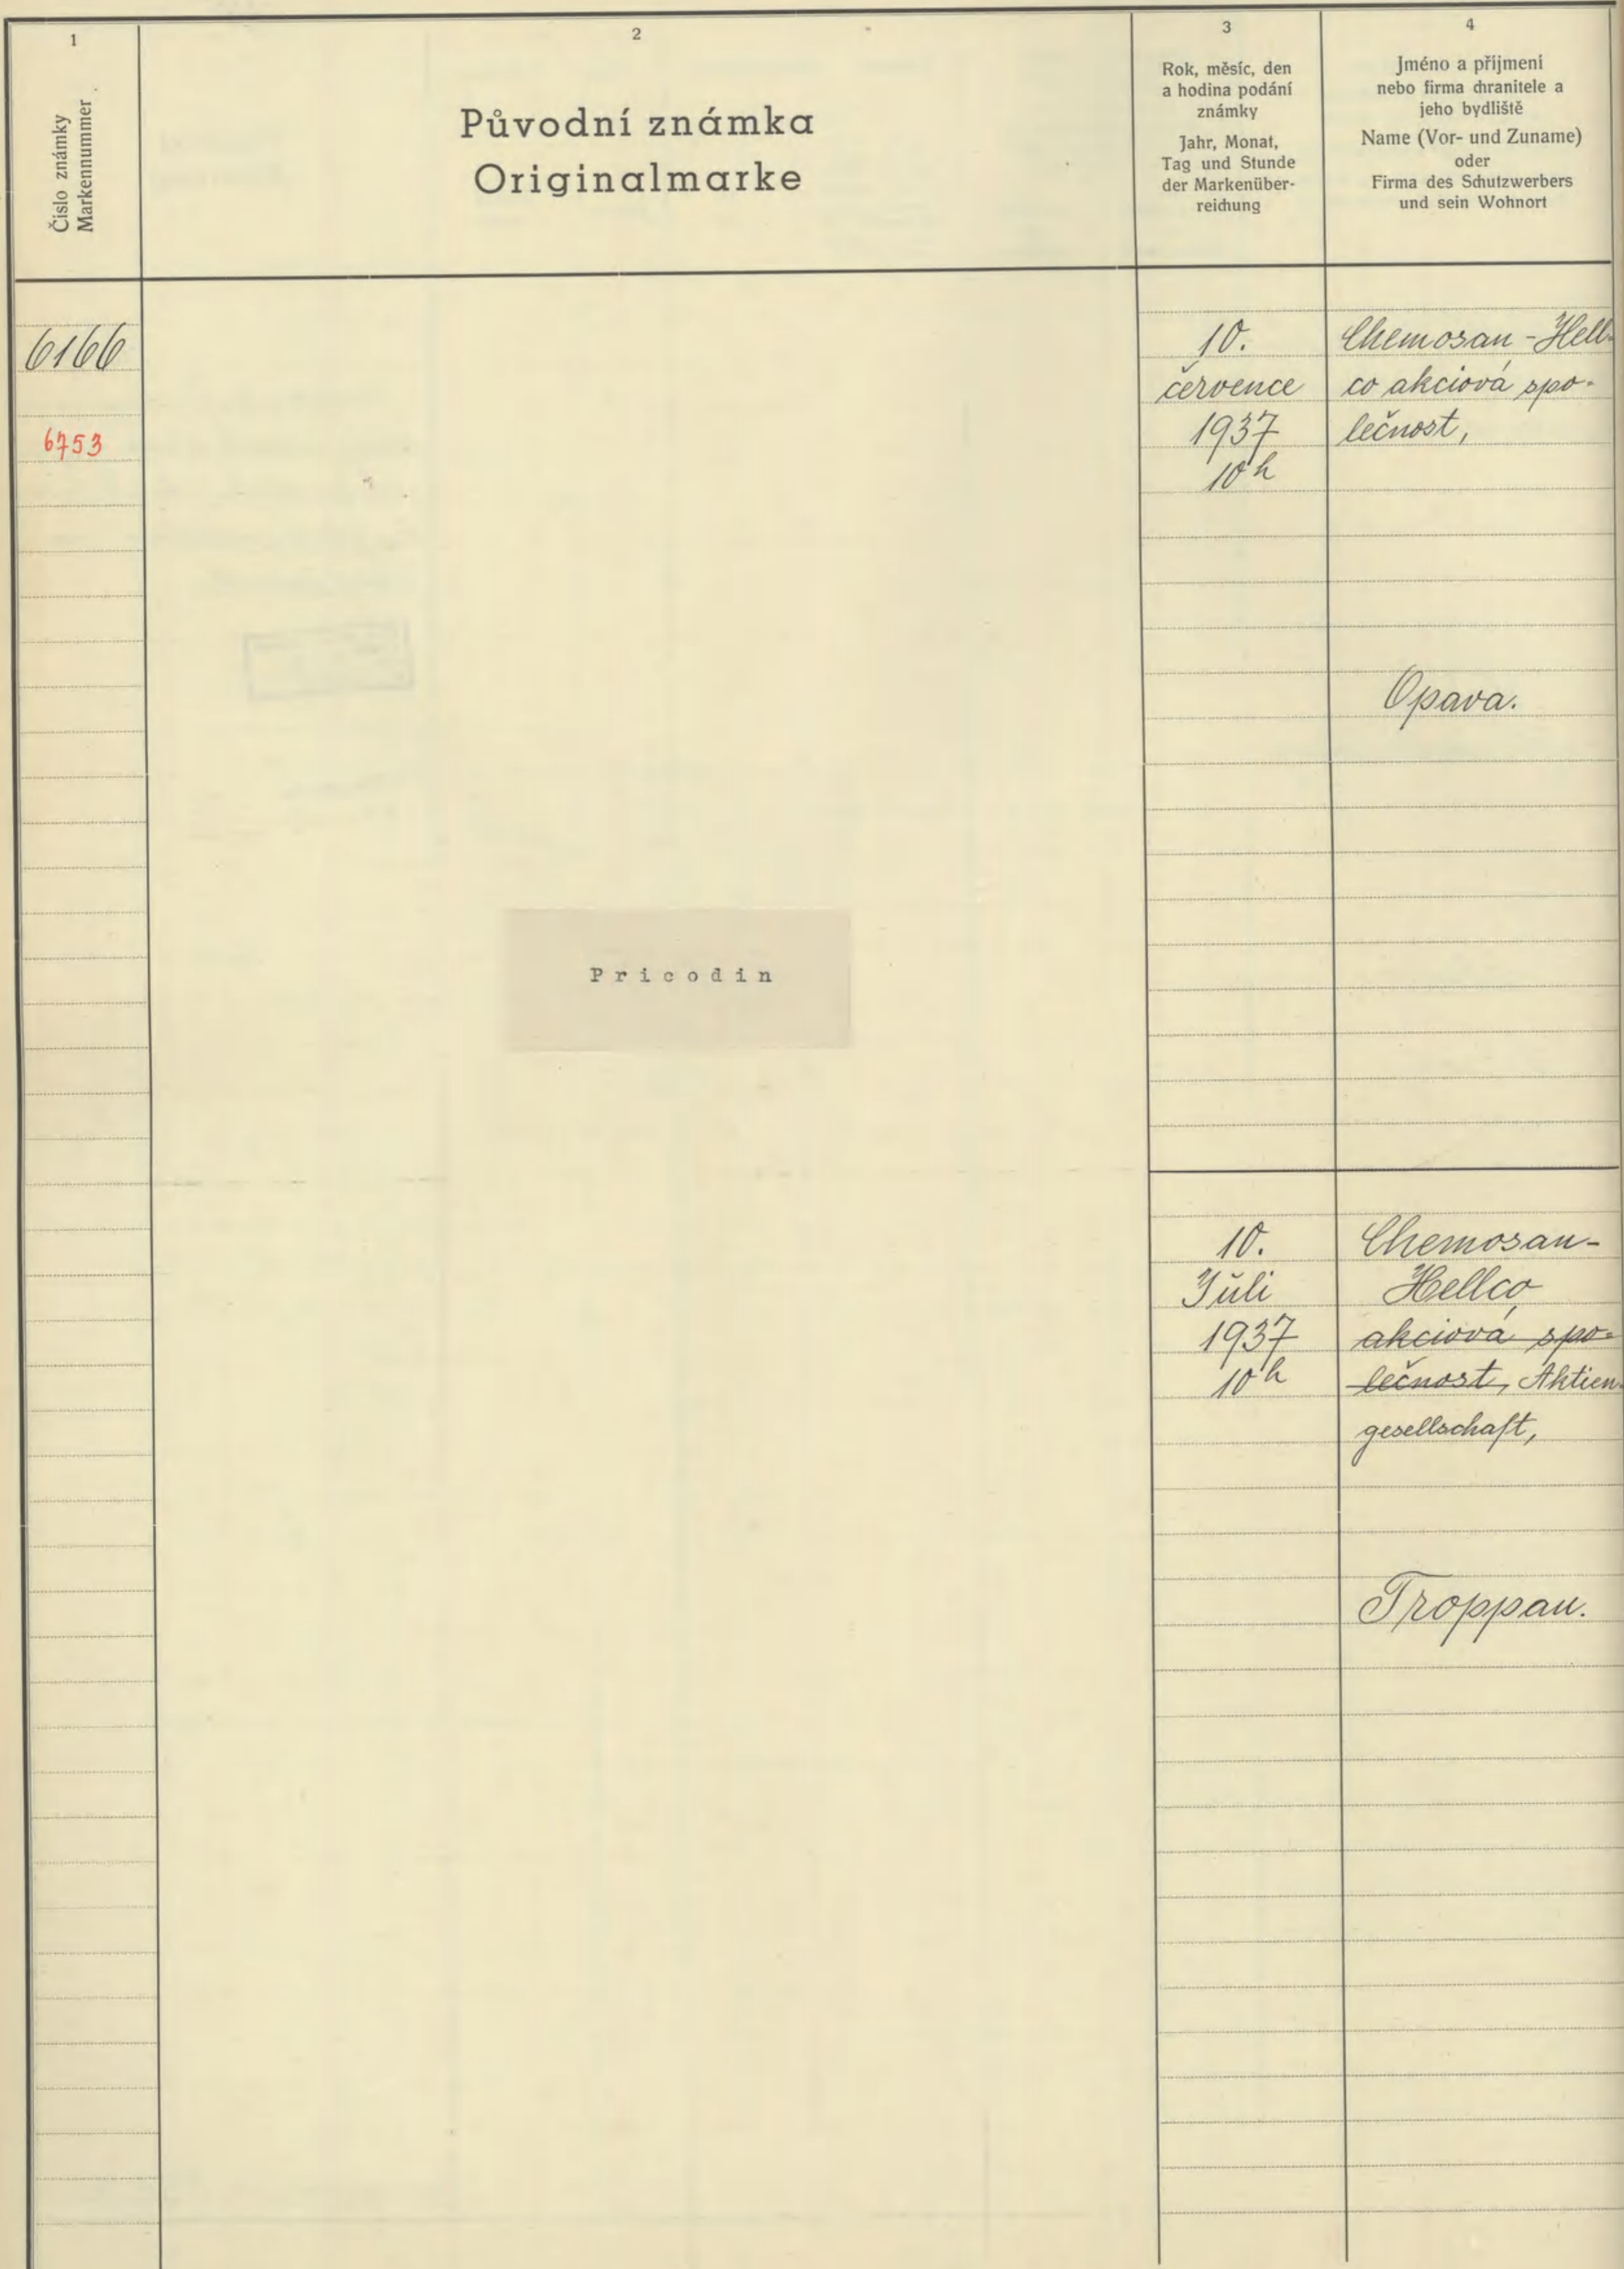 1
Číslo známky
Markennummer
2
Původní známka
Originalmarke
3
Rok, měsíc, den
a hodina podání
známky
Jahr, Monat,
Tag und Stunde
der Markenüber-
reichung
4
Jméno a příjmení
nebo firma chranitele a
jeho bydliště
Name (Vor- und Zuname)
oder
Firma des Schutzwerbers
und sein Wohnort
6166
6753
10.
července
1937
10h
Chemosan-Hell-
co akciová spo-
lečnost,
Opava.
Pricodin
10.
Juli
1937
10h
Chemosan-
Hellco,
akciová spo-
lečnost, Aktien-
gesellschaft,
Troppau.